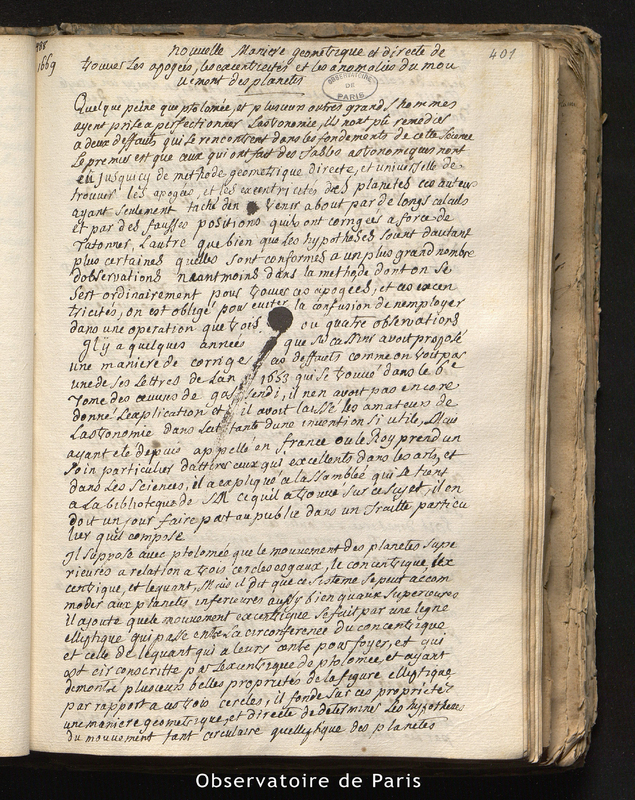 1669
401
nouvelle Maniere geometrique et directe de
trouver Les apogées, les excentricites et les anomalies du mou
vement des planetes
OBSERVATOIRE DE PARIS
Quelque peine que ptolomée, et plusieurs autres grands hommes
ayent prise a perfectionner Lastronomie, Ils nont pû remedier
a deux deffauts qui se rencontrent dans les fondements de cette science
Le premier est que ceux qui ont fait des Tables astronomiques nont
eü jusquicy de methode geometrique directe, et universelle de
trouver les apogées, et les excentricites des planetes ces auteurs
ayant seulement taché den venir about par de longs calculs
et par des fausses positions quils ont corrigées a force de
Tatonner, Lautre que bien que les hypotheses soient dautant
plus certaines quelles sont conformes a un plus grand nombre
dobservations neantmoins dans la methode dont on se
sert ordinairement pour trouver ces apogées, et ces excen
tricités, on est obligé pour eviter la confusion de nemployer
dans une operation que trois ou quatre observations
Il y a quelques années que Mr Cassini avoit proposé
une maniere de corriger ces deffauts comme on voit par
une de ses Lettres de Lan 1653 qui se trouve dans le 6e
Tome des œuvres de gassendi, il nen avoit pas encore
donné Lexplication et il avoit laissé les amateurs de
Lastronomie dans Lattente dune invention si utile, Mais
ayant eté depuis appellé en france ou le Roy prend un
soin particulier dattirer ceux qui excellent dans les arts, et
dans Les sciences, il a expliqué a lassemblée qui se tient
a La bibliotcque de S M ce quil a trouvé sur ce sujet, il en
doit un jour faire part au publie dans un Traitte particu
lier quil compose
Il supose avec ptolomée que le mouvement des planetes supe
rieures a relation a trois cercles egaux, le concentrique, lex
centrique, et lequant, Mais il dit que ce sisteme se peut accom
moder aux planetes inferieures aussy bien quaux superieures
il ajoute que le mouvement excentrique se fait par une ligne
elliptique qui passe entre la circonference du concentrique
et celle de lequant qui a leurs centre pour foyer, et qui
est circonscritte par lexcentrique de ptolomée, et ayant
demontré plusieurs belles proprietés de la figure elliptique
par rapport a ces trois cercles, il fonde sur ces proprietes
une maniere geometrique, et directe de determiner Les hypotheses
du mouvement tant circulaire quelliptique des planetes
Observatoire de Paris